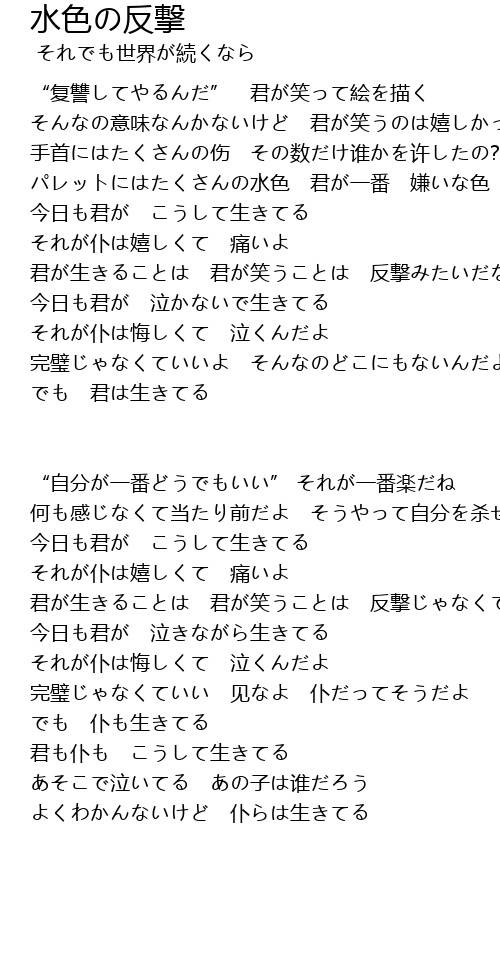 水色の反撃
それでも世界が続くなら
“复讐してやるんだ”　君が笑って絵を描く
そんなの意味なんかないけど　君が笑うのは嬉しかっ
手首にはたくさんの伤　その数だけ谁かを许したの?
パレットにはたくさんの水色　君が一番　嫌いな色
今日も君が　こうして生きてる
それが仆は嬉しくて　痛いよ
君が生きることは　君が笑うことは　反撃みたいだな
今日も君が　泣かないで生きてる
それが仆は悔しくて　泣くんだよ
完璧じゃなくていいよ　そんなのどこにもないんだよ
でも　君は生きてる
“自分が一番どうでもいい”　それが一番楽だね
何も感じなくて当たり前だよ　そうやって自分を杀せ
今日も君が　こうして生きてる
それが仆は嬉しくて　痛いよ
君が生きることは　君が笑うことは　反撃じゃなくて
今日も君が　泣きながら生きてる
それが仆は悔しくて　泣くんだよ
完璧じゃなくていい　见なよ　仆だってそうだよ
でも　仆も生きてる
君も仆も　こうして生きてる
あそこで泣いてる　あの子は谁だろう
よくわかんないけど　仆らは生きてる